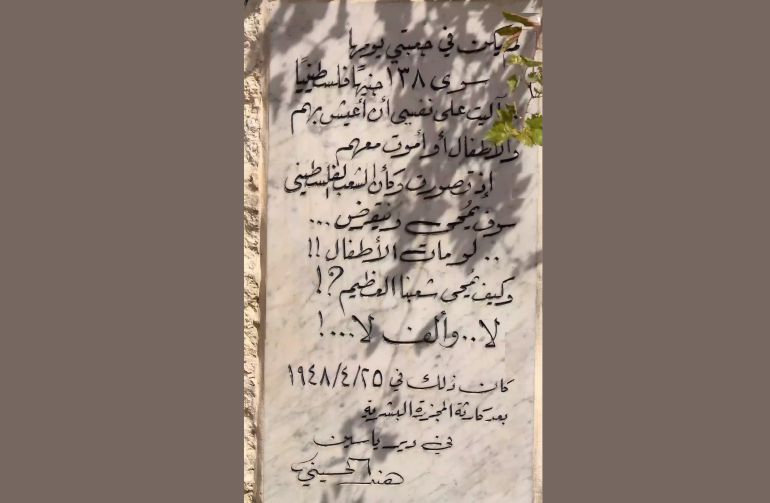 لم يكن في جعبتي يومها
سوى ١٣٨ جنيهًا فلسطينيًا
آليت على نفسي أن أعيش بهم
والأطفال أو أموت معهم
إذ تصورت وكأن الشعب الفلسطيني
سوف يُمحى وينقرض ...
.. لو مات الأطفال !!
وكيف يمحى شعبنا العظيم ؟!
لا .. وألف لا ... !
كان ذلك في ١٩٤٨/٤/٢٥
بعد كارثة المجزرة البشرية
في دير ياسين
هند الحسيني